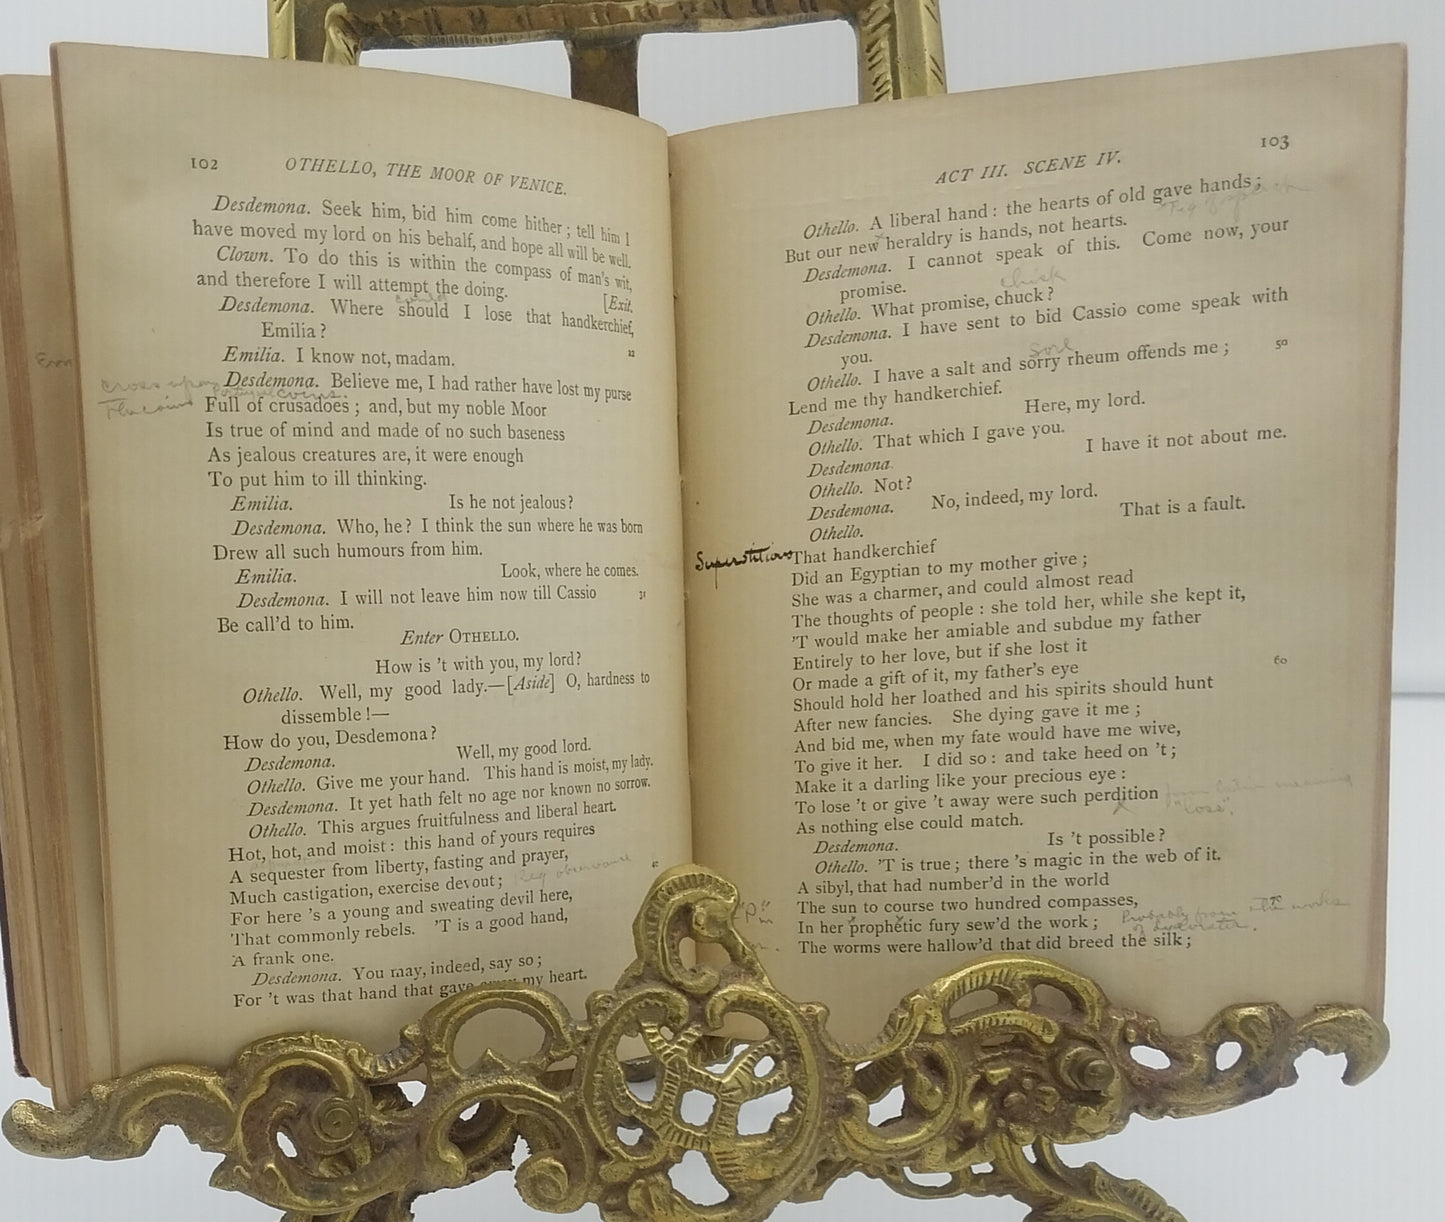 102 OTHELLO, THE MOOR OF VENICE.
Desdemona. Seek him, bid him come hither; tell him I
have moved my lord on his behalf, and hope all will be well.
Clown. To do this is within the compass of man's wit,
and therefore I will attempt the doing. [Exit.
could
Desdemona. Where should I lose that handkerchief,
Emilia? 22
Emilia. I know not, madam.
Desdemona. Believe me, I had rather have lost my purse
cross upon
coins.
Full of crusadoes; and, but my noble Moor
Is true of mind and made of no such baseness
As jealous creatures are, it were enough
To put him to ill thinking.
Emilia. Is he not jealous?
Desdemona. Who, he? I think the sun where he was born
Drew all such humours from him.
Emilia. Look, where he comes.
Desdemona. I will not leave him now till Cassio 31
Be call'd to him.
Enter OTHELLO.
How is 't with you, my lord?
Othello. Well, my good lady.—[Aside] O, hardness to
dissemble!—
How do you, Desdemona?
Desdemona. Well, my good lord.
Othello. Give me your hand. This hand is moist, my lady.
Desdemona. It yet hath felt no age nor known no sorrow.
Othello. This argues fruitfulness and liberal heart.
Hot, hot, and moist: this hand of yours requires
A sequester from liberty, fasting and prayer, 40
Much castigation, exercise devout;
For here 's a young and sweating devil here,
That commonly rebels. 'T is a good hand,
A frank one.
Desdemona. You may, indeed, say so;
For 't was that hand that gave my heart.
ACT III. SCENE IV. 103
Othello. A liberal hand: the hearts of old gave hands;
But our new heraldry is hands, not hearts.
Desdemona. I cannot speak of this. Come now, your
promise.
chick
Othello. What promise, chuck?
Desdemona. I have sent to bid Cassio come speak with
you.
Othello. I have a salt and sorry rheum offends me; 50
Lend me thy handkerchief.
Desdemona. Here, my lord.
Othello. That which I gave you.
Desdemona. I have it not about me.
Othello. Not?
Desdemona. No, indeed, my lord.
Othello. That is a fault.
Superstitions
That handkerchief
Did an Egyptian to my mother give;
She was a charmer, and could almost read
The thoughts of people: she told her, while she kept it,
'T would make her amiable and subdue my father
Entirely to her love, but if she lost it
Or made a gift of it, my father's eye 60
Should hold her loathed and his spirits should hunt
After new fancies. She dying gave it me;
And bid me, when my fate would have me wive,
To give it her. I did so: and take heed on 't;
Make it a darling like your precious eye:
To lose 't or give 't away were such perdition
from Latin meaning
"loss".
As nothing else could match.
Desdemona. Is 't possible?
Othello. 'T is true; there 's magic in the web of it.
A sibyl, that had number'd in the world
The sun to course two hundred compasses, 70
In her prophetic fury sew'd the work;
Probably from the works
The worms were hallow'd that did breed the silk;